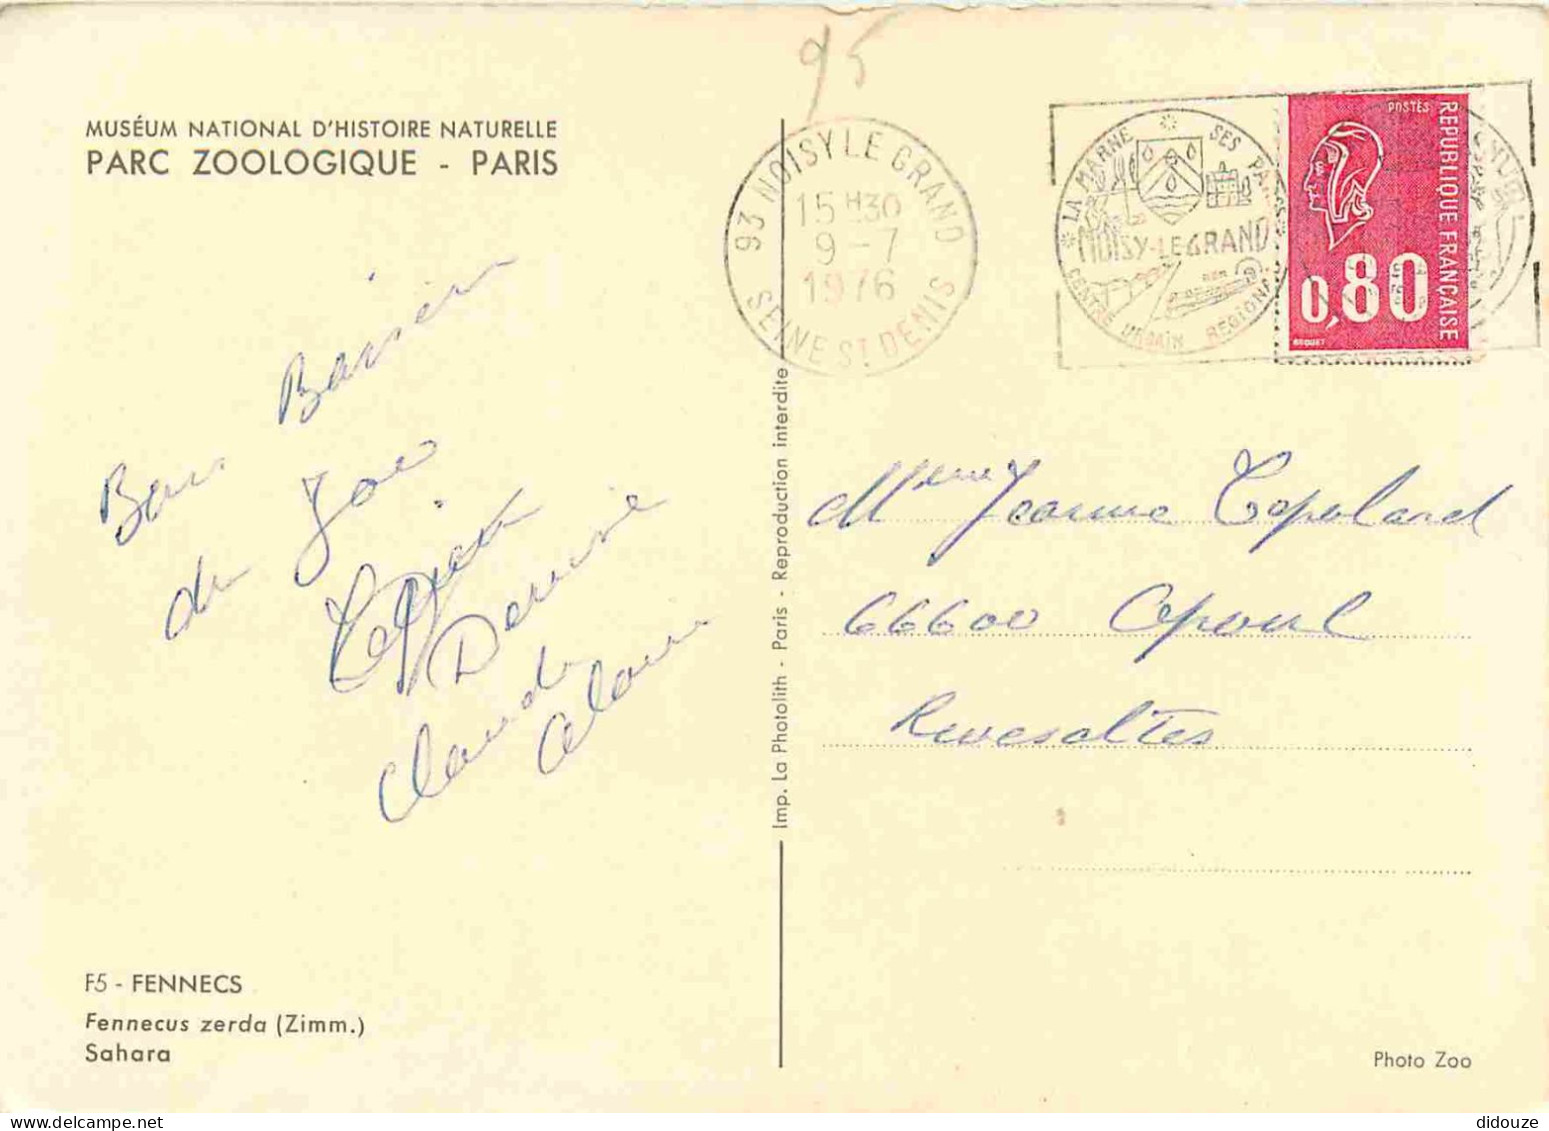 95
MUSÉUM NATIONAL D'HISTOIRE NATURELLE
PARC ZOOLOGIQUE - PARIS
93 NOISY LE GRAND
15 H30
9 - 7
1976
SEINE ST DENIS
LA MARNE SES PARCS
NOISY-LE GRAND
CENTRE URBAIN REGIONAL
POSTES
REPUBLIQUE FRANÇAISE
0,80
BEQUET
Bons Baisers
de Joe
Denise
Claude
Alain
Mme Jeanne
66600 Opoul
Rivesaltes
Imp. La Photolith - Paris - Reproduction interdite
F5 - FENNECS
Fennecus zerda (Zimm.)
Sahara
Photo Zoo
didouze